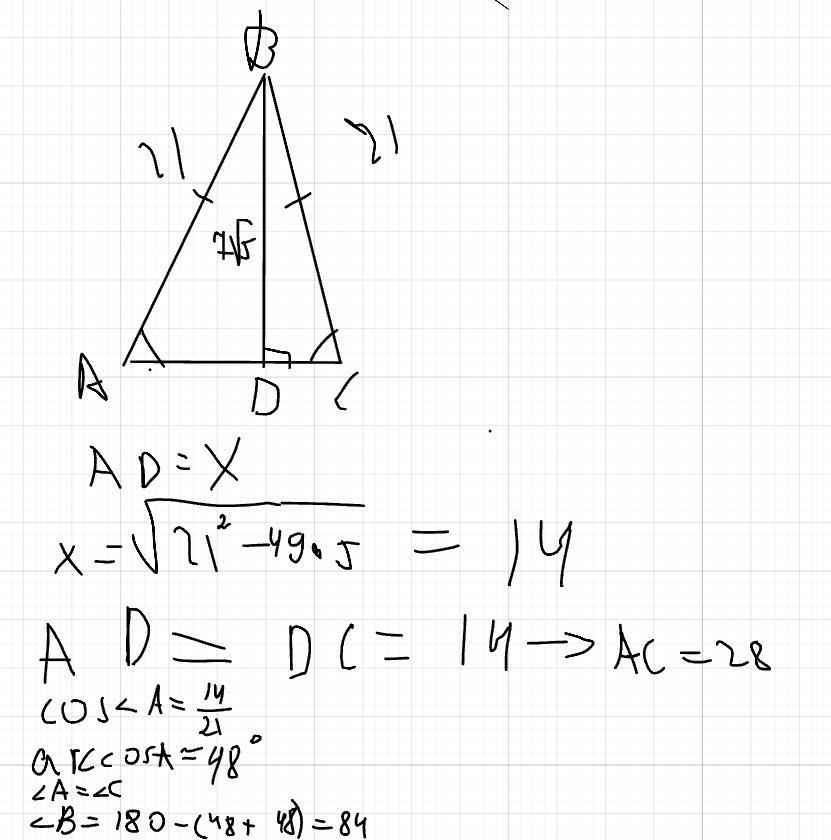 B
21 21
7√5
A D C
AD = X
x = √21² - 49 · 5 = 14
AD = DC = 14 → AC = 28
cos∠A = 14/21
arccosA = 48°
∠A = ∠C
∠B = 180 - (48 + 48) = 84